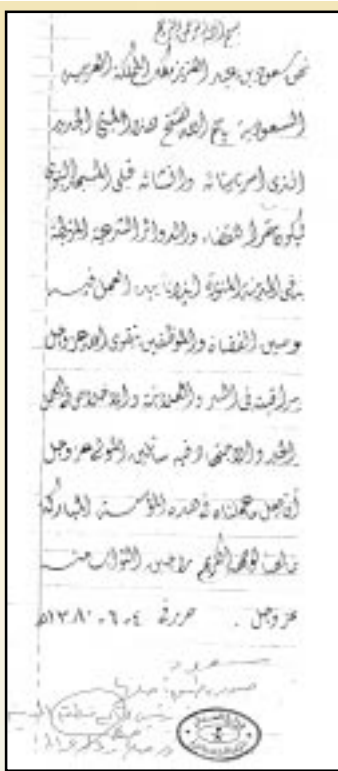 بسم الله الرحمن الرحيم
نحن سعود بن عبد العزيز ملك المملكة العربية
السعودية باسم الله نفتتح هذا المبنى الجديد
الذي أمر ببنائه وانشائه قبلي المسجد النبوي
ليكون مقرا للقضاء والدوائر الشرعية المرتبطة
في المدينة المنورة ايذانا ببدء العمل فيه
ونوصي القضاة والموظفين بتقوى الله عز وجل
ومراقبته في السر والعلانية والاخلاص في العمل
الخير والاجتهاد فيه سائلين المولى عز وجل
أن يجعل عملنا في هذه المؤسسة المباركة
خالصا لوجهه الكريم راجين الثواب منه
عز وجل . حرر في ٤-٦-١٣٨٠ه
سعود